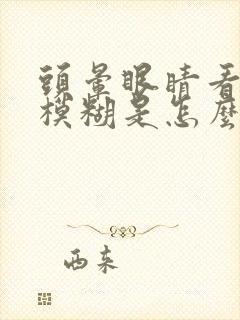 頭暈眼睛看
模糊是怎麼
西來